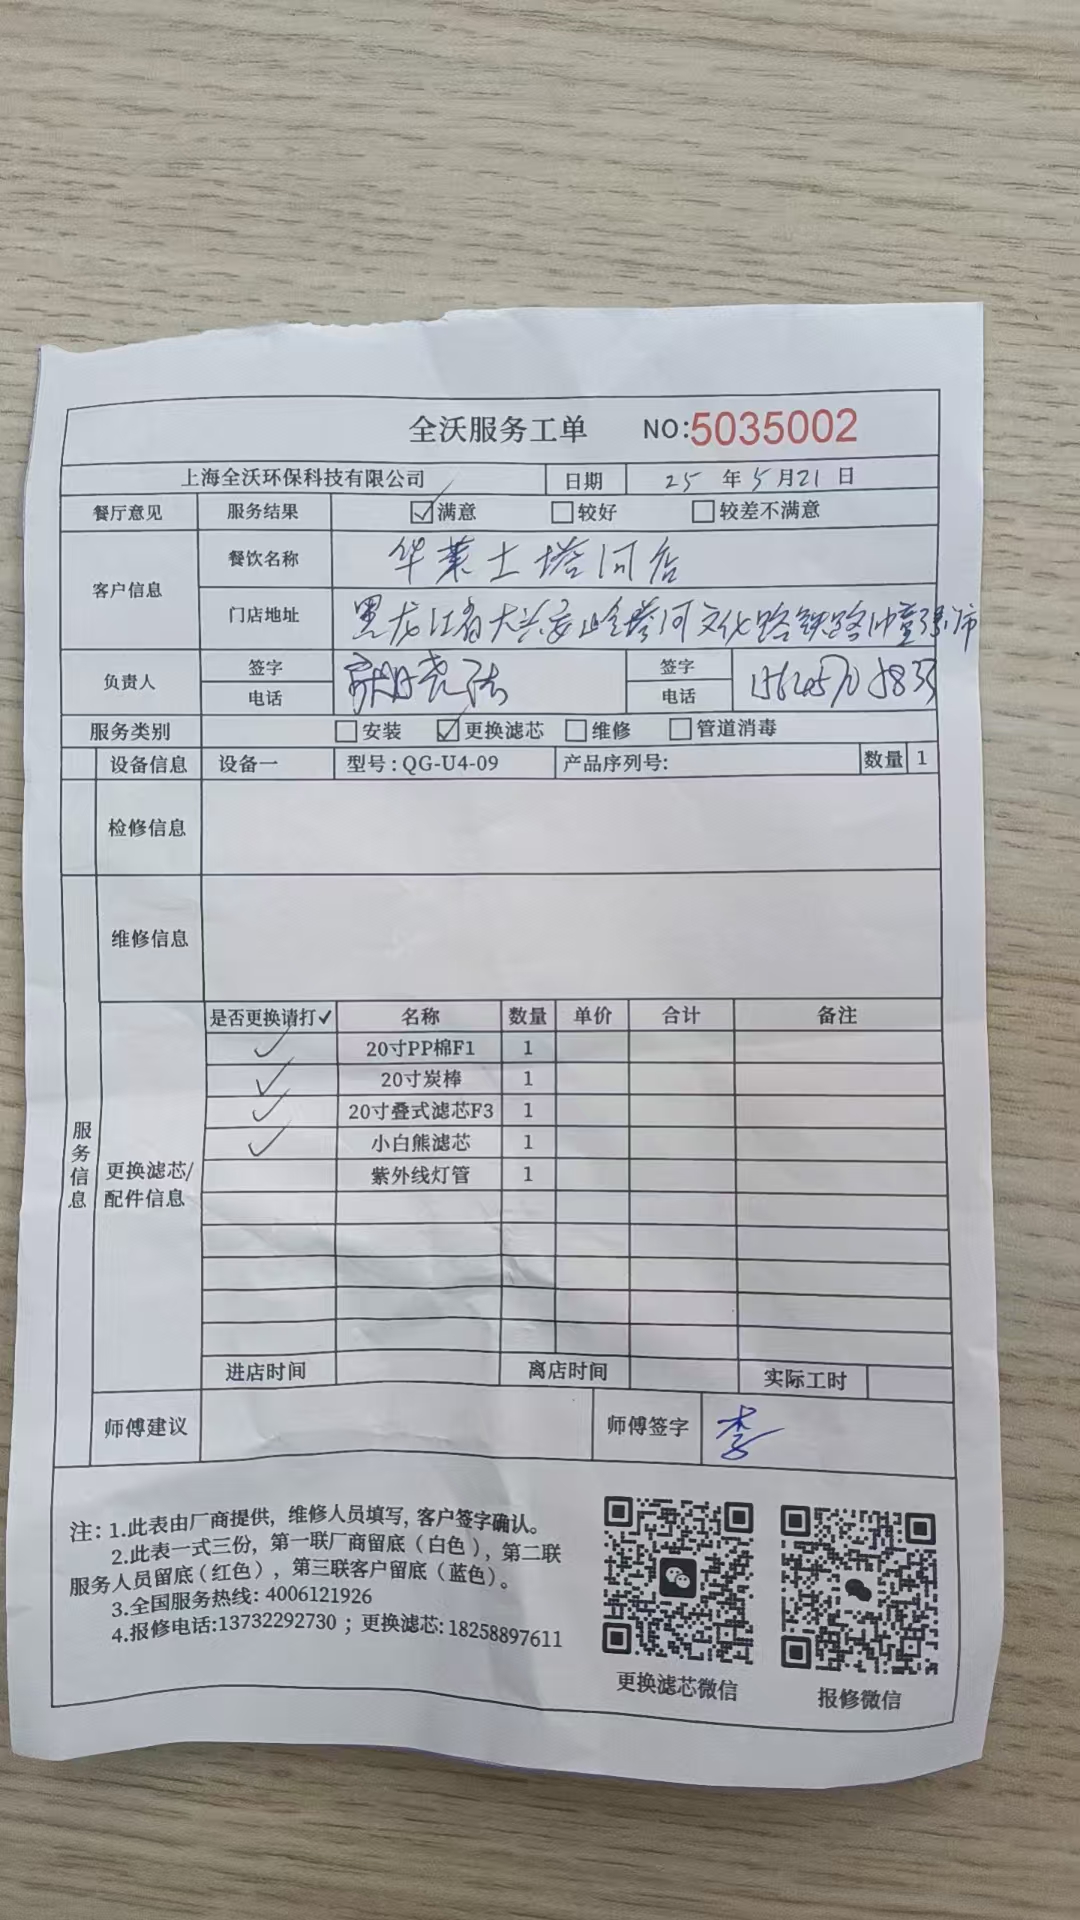 全沃服务工单 NO:5035002
上海全沃环保科技有限公司 日期 25 年 5 月 21 日
餐厅意见 服务结果 ☑满意 □较好 □较差不满意
客户信息 餐饮名称 华莱士塔河店
门店地址 黑龙江省大兴安岭塔河文化路铁路
负责人 签字 签字
电话 电话
服务类别 □安装 ☑更换滤芯 □维修 □管道消毒
设备信息 设备一 型号:QG-U4-09 产品序列号: 数量 1
检修信息
维修信息
服务信息
更换滤芯/配件信息
是否更换请打✓ 名称 数量 单价 合计 备注
✓ 20寸PP棉F1 1
✓ 20寸炭棒 1
✓ 20寸叠式滤芯F3 1
✓ 小白熊滤芯 1
紫外线灯管 1
进店时间 离店时间 实际工时
师傅建议 师傅签字 李
注: 1.此表由厂商提供，维修人员填写, 客户签字确认。
2.此表一式三份，第一联厂商留底（白色），第二联
服务人员留底（红色），第三联客户留底（蓝色）。
3.全国服务热线: 4006121926
4.报修电话:13732292730；更换滤芯: 18258897611
更换滤芯微信 报修微信